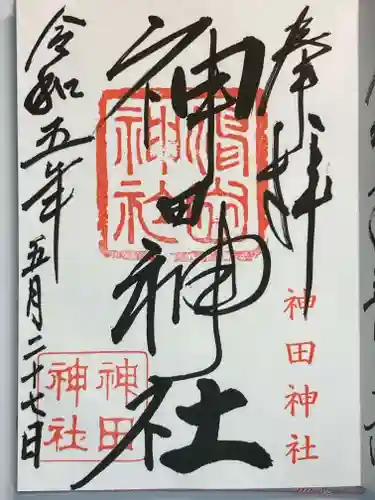 奉拝
神田神社
神田神社
神社
令和五年五月二十七日
神田
神社